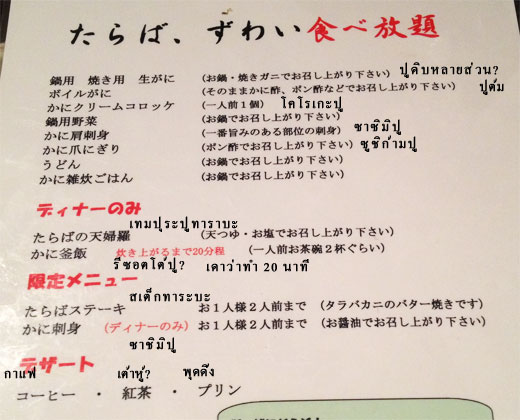 たらば、ずわい食べ放題
鍋用 焼き用 生がに (お鍋・焼きガニでお召し上がり下さい) ปูดิบหลายส่วน?
ボイルがに (そのままかに酢、ポン酢などでお召し上がり下さい) ปูต้ม
かにクリームコロッケ (一人前1個) โคโรเกะปู
鍋用野菜 (お鍋でお召し上がり下さい)
かに肩刺身 (一番旨みのある部位の刺身) ซาชิมิปู
かに爪にぎり (ポン酢でお召し上がり下さい) ซูชิก้ามปู
うどん (お鍋でお召し上がり下さい)
かに雑炊ごはん (お鍋でお召し上がり下さい)
ディナーのみ
เทมปุระปูทาราบะ
たらばの天婦羅 (天つゆ・お塩でお召し上がり下さい)
かに釜飯 炊き上がるまで20分程 (一人前お茶碗2杯ぐらい)
รีซอตโต้ปู? เดาว่าทำ 20 นาที
限定メニュー
สเต็กทาระบะ
たらばステーキ お1人様2人前まで (タラバカニのバター焼きです)
かに刺身 (ディナーのみ) お1人様2人前まで (お醤油でお召し上がり下さい)
ซาชิมิปู
デザート
กาแฟ เต้าหู้? พุดดิ้ง
コーヒー ・ 紅茶 ・ プリン